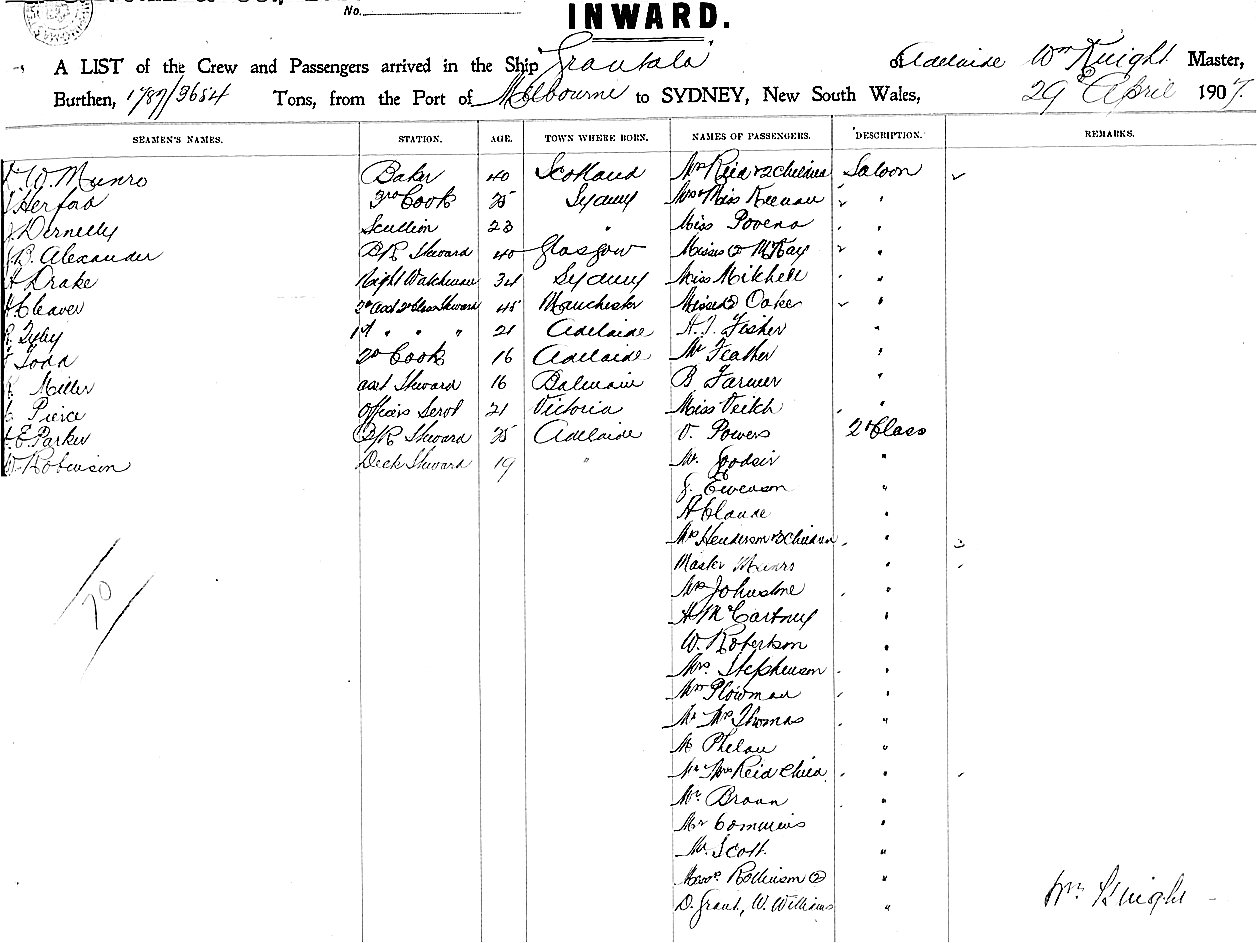 No.
INWARD.
A LIST of the Crew and Passengers arrived in the Ship Grantala Adelaide Wm Knight Master,
Burthen, 1789/3654 Tons, from the Port of Melbourne to SYDNEY, New South Wales, 29 April 1907.
SEAMEN'S NAMES. STATION. AGE. TOWN WHERE BORN. NAMES OF PASSENGERS. DESCRIPTION. REMARKS.
W. Munro Baker 40 Scotland Mrs Reid & 2 Children Saloon
3rd Cook 25 Sydney Mrs & Miss Keenan "
Scullion 23 " Miss Povena "
B. Alexander B/R Steward 40 Glasgow Misses (2) McKay "
Drake Night Watchman 34 Sydney Miss Mitchell "
Cleaver 2nd asst 2nd Class Steward 45 Manchester Misses (2) Oake "
1st " " " 21 Adelaide A. J. Fisher "
Todd 2nd Cook 16 Adelaide Mr Feather "
Miller asst Steward 16 Balmain B Farmer "
Pierce Officers Servt 21 Victoria Miss Veitch "
E Parker B/R Steward 25 Adelaide V. Powers 2nd Class
W. Robinson Deck Steward 19 " Mr. Goodsir "
J. Evenson "
A Claude "
Mrs Henderson & 3 Children "
Master Munro "
Mrs Johnstone "
A McCartney "
W. Robertson "
Mrs. Stephenson "
Mrs Plowman "
Mr Mrs Thomas "
M Phelan "
Mr Mrs Reid Child "
Mr. Braun "
Mr Commins "
Mr. Scott "
Messrs Rollinson (2) "
D. Grant, W. Williams "
70
Wm Knight